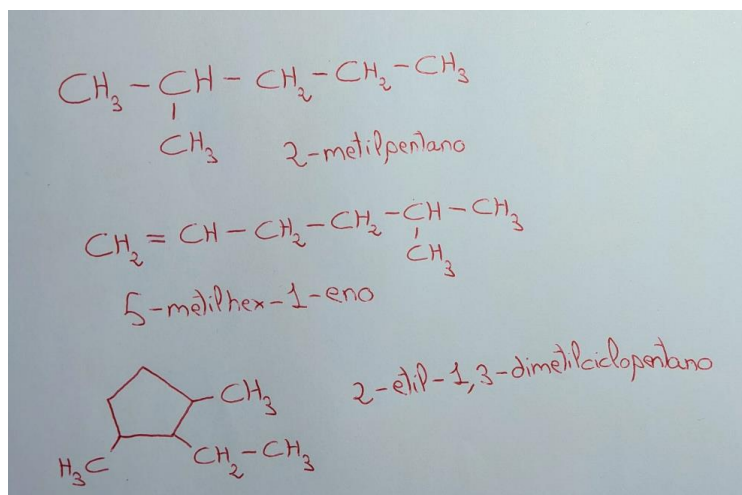 CH₃ – CH – CH₂ – CH₂ – CH₃
CH₃
2-metilpentano
CH₂ = CH – CH₂ – CH₂ – CH – CH₃
CH₃
5-metilhex-1-eno
CH₃
2-etil-1,3-dimetilciclopentano
H₃C
CH₂–CH₃